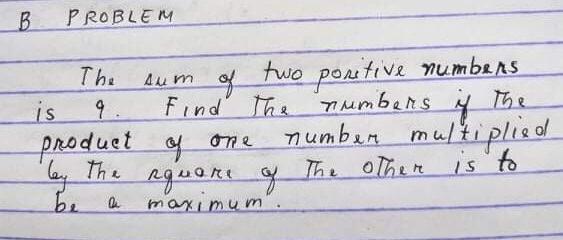 B PROBLEM
The sum of two positive numbers
is 9. Find The numbers if The
product of one number multiplied
by The square of The other is to
be a maximum.